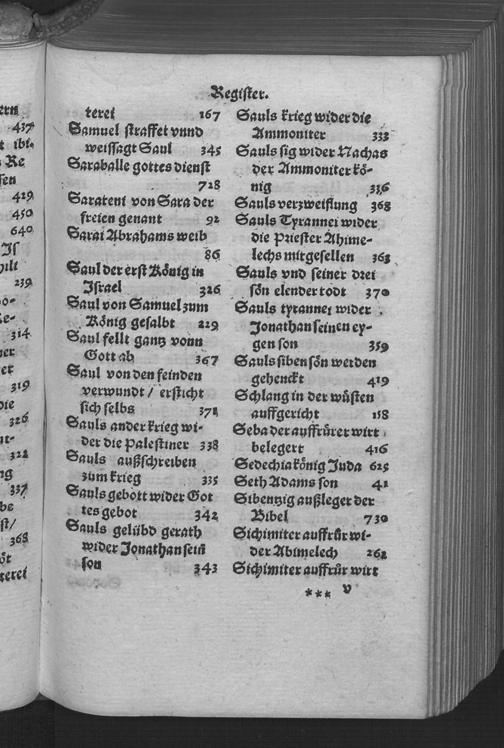 ern
437
t ibi-
Re
sen
419
450
640
Js
hilt
239
314
ner
er
319
die
326
nt-
322
ng
337
be
st/
368
terei
Register.
terei 167
Samuel straffet vnnd
weissagt Saul 345
Saraballe gottes dienst
728
Sarateni von Sara der
freien genant 92
Sarai Abrahams weib
86
Saul der erst König in
Israel 326
Saul von Samuel zum
König gesalbt 229
Saul fellt gantz vonn
Gott ab 367
Saul von den feinden
verwundt / ersticht
sich selbs 371
Sauls ander krieg wi-
der die Palestiner 338
Sauls außschreiben
zum krieg 335
Sauls gebott wider Got
tes gebot 342
Sauls gelübd gerath
wider Jonathan sein
son 343
Sauls krieg wider die
Ammoniter 333
Sauls sig wider Nachas
der Ammoniter kö-
nig 336
Sauls verzweiflung 368
Sauls Tyrannei wider
die Priester Ahime-
lechs mitgesellen 363
Sauls vnd seiner drei
sön elender todt 370
Sauls tyrannei wider
Jonathan seinen ey-
gen son 359
Sauls siben sön werden
gehenckt 419
Schlang in der wüsten
auffgericht 158
Seba der auffrürer wirt
belegert 416
Sedechia könig Juda 625
Seth Adams son 41
Sibentzig außleger der
Bibel 730
Sichimiter auffrür wi-
der Abimelech 262
Sichimiter auffrür wirt
*** v